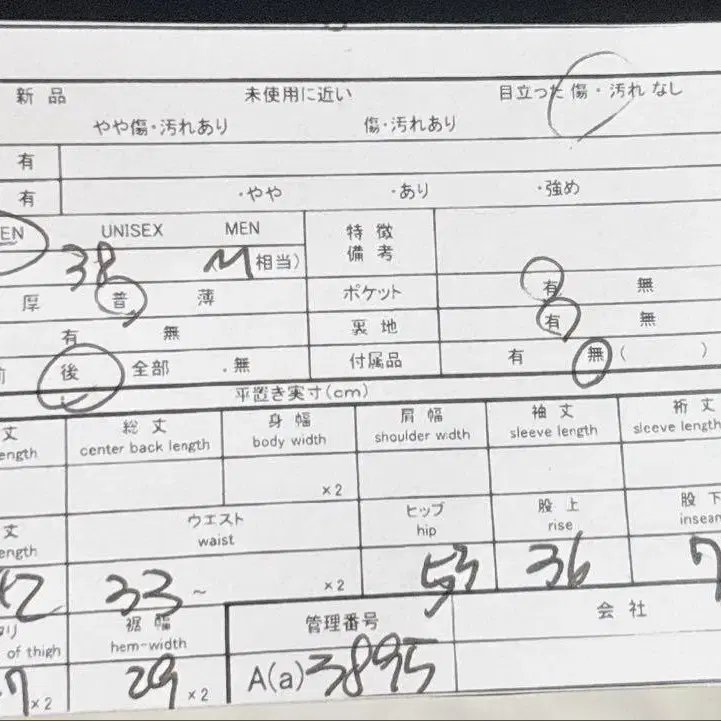 新品 未使用に近い 目立った傷・汚れなし
やや傷・汚れあり 傷・汚れあり
有
有 ・やや ・あり ・強め
EN UNISEX MEN 特徴
備考
38 (M相当)
厚 普 薄 ポケット 有 無
有 無 裏地 有 無
前 後 全部 ・無 付属品 有 無 ( )
平置き実寸(cm)
丈 総丈 身幅 肩幅 袖丈 裄丈
ength center back length body width shoulder width sleeve length sleeve length
×2
丈 ウエスト ヒップ 股上 股下
ength waist hip rise inseam
33~ ×2 53 36 7
タリ 裾幅 管理番号 会社
of thigh hem-width
7 ×2 29 ×2 A(a) 3895